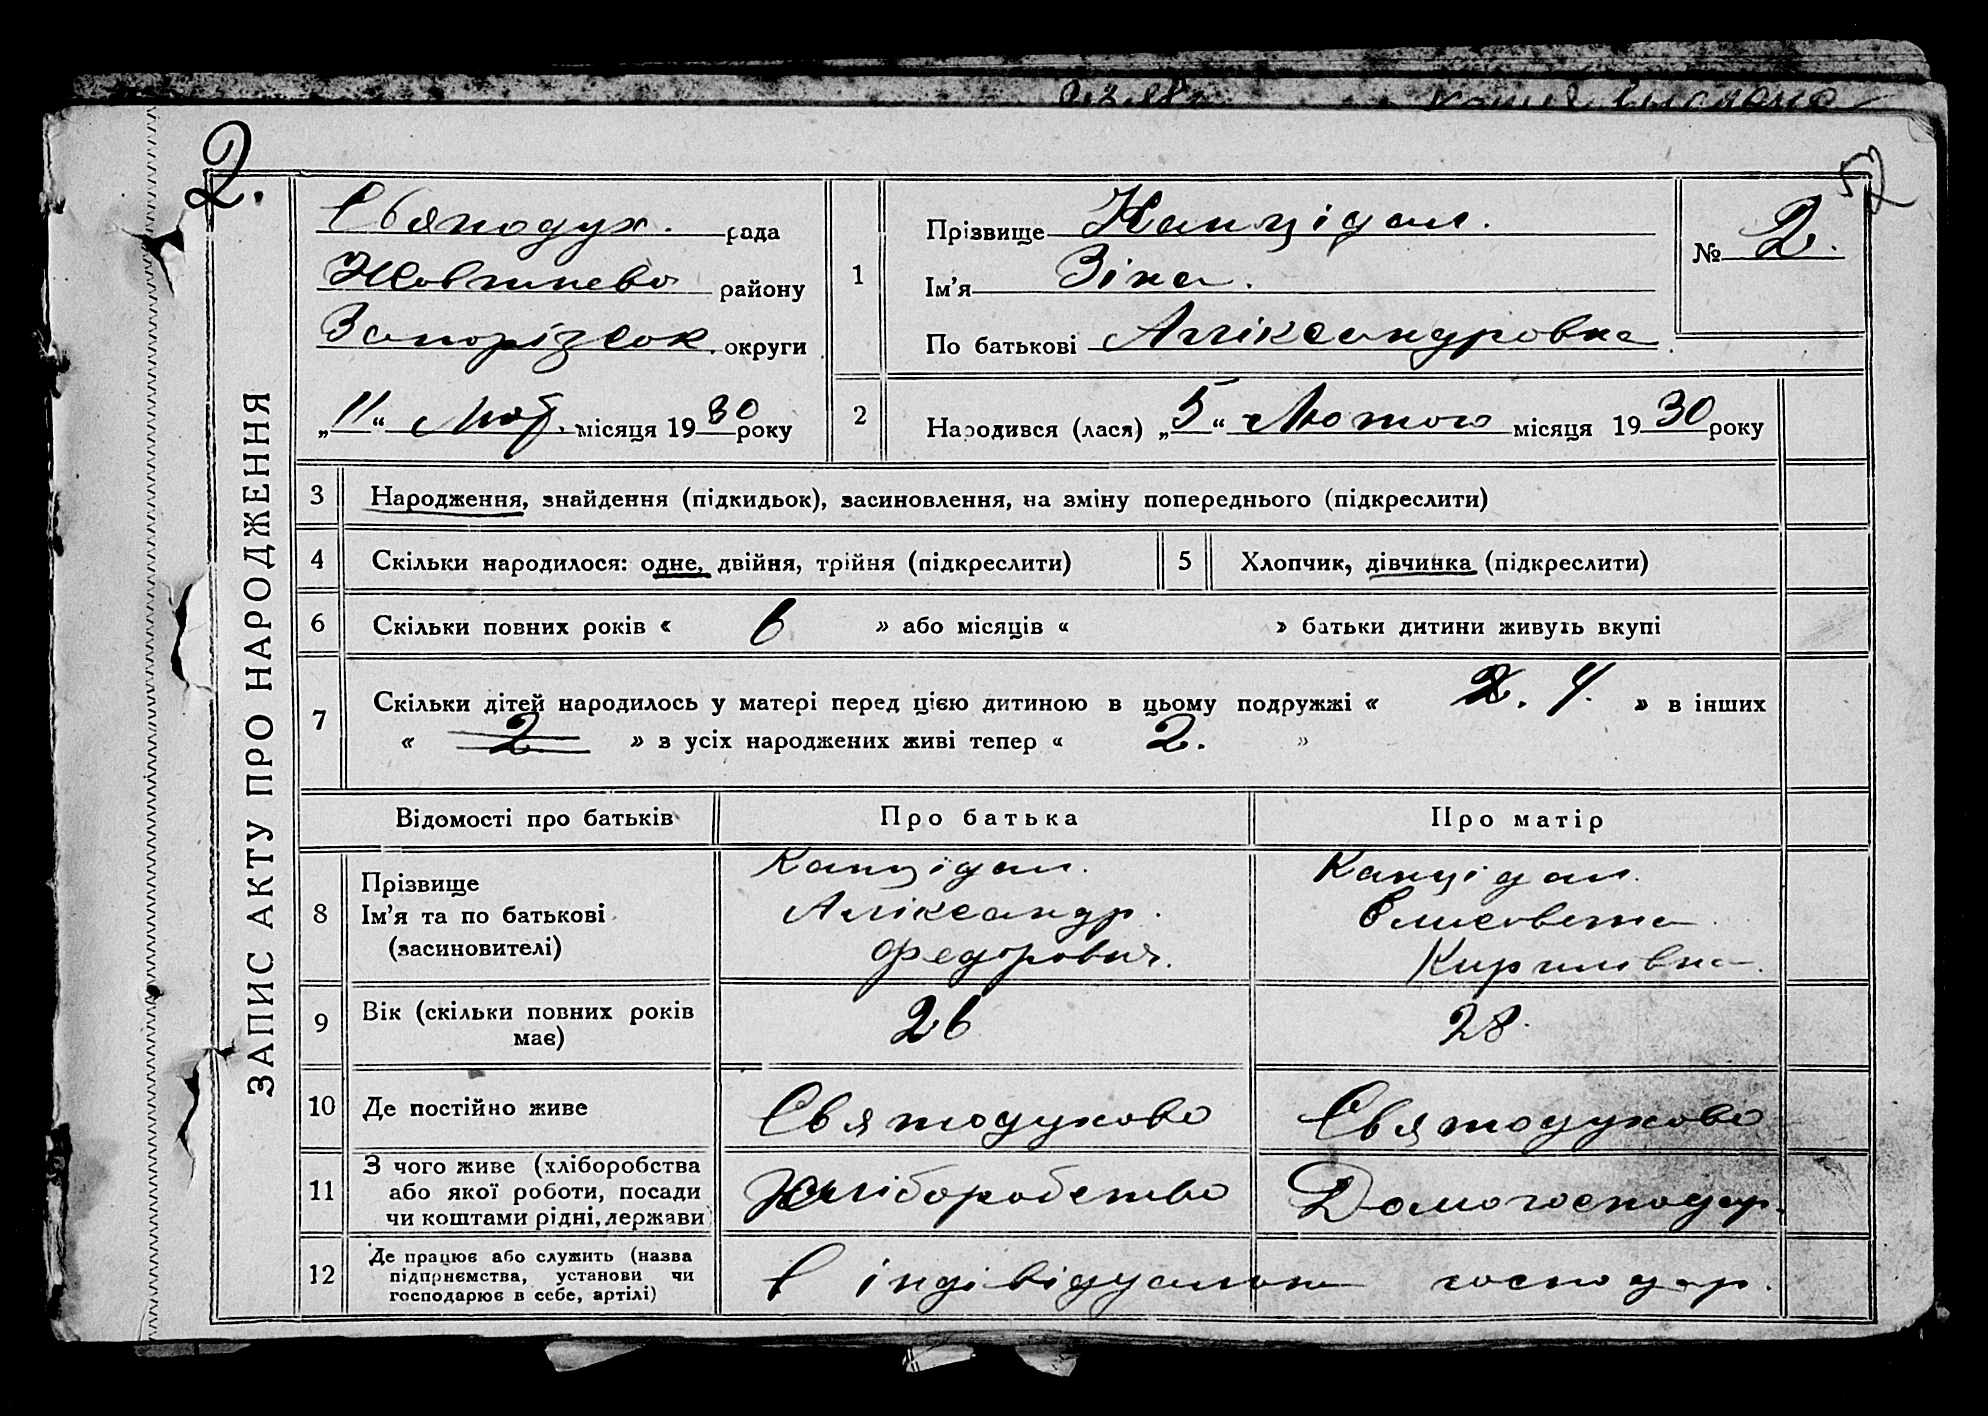 2.
Святодух. рада
Жовтнево району
Запорізьок. округи
„11“ Лют. місяця 1930 року
1
Прізвище Канцідал.
Ім'я Зіна.
По батькові Аліксандровна
№ 2.
2
Народився (лася) „5“ Лютого місяця 1930 року
ЗАПИС АКТУ ПРО НАРОДЖЕННЯ
3 Народження, знайдення (підкидьок), засиновлення, на зміну попереднього (підкреслити)
4 Скільки народилося: одне, двійня, трійня (підкреслити)
5 Хлопчик, дівчинка (підкреслити)
6 Скільки повних років « 6 » або місяців « » батьки дитини живуть вкупі
7 Скільки дітей народилось у матері перед цією дитиною в цьому подружжі « 4. » в інших
« 2 » в усіх народжених живі тепер « 2. »
Відомості про батьків Про батька Про матір
8
Прізвище
Ім'я та по батькові
(засиновителі)
Канцідал.
Аліксандр.
Федорович.
Канцідал.
Єлисовета
Кирилівна.
9 Вік (скільки повних років
має)
26
28.
10 Де постійно живе Святодухово Святодухово
11
З чого живе (хліборобства
або якої роботи, посади
чи коштами рідні, держави
Хліборобство
Домогосподар.
12
Де працює або служить (назва
підприємства, установи чи
господарює в себе, артілі)
В індівідуально господар.